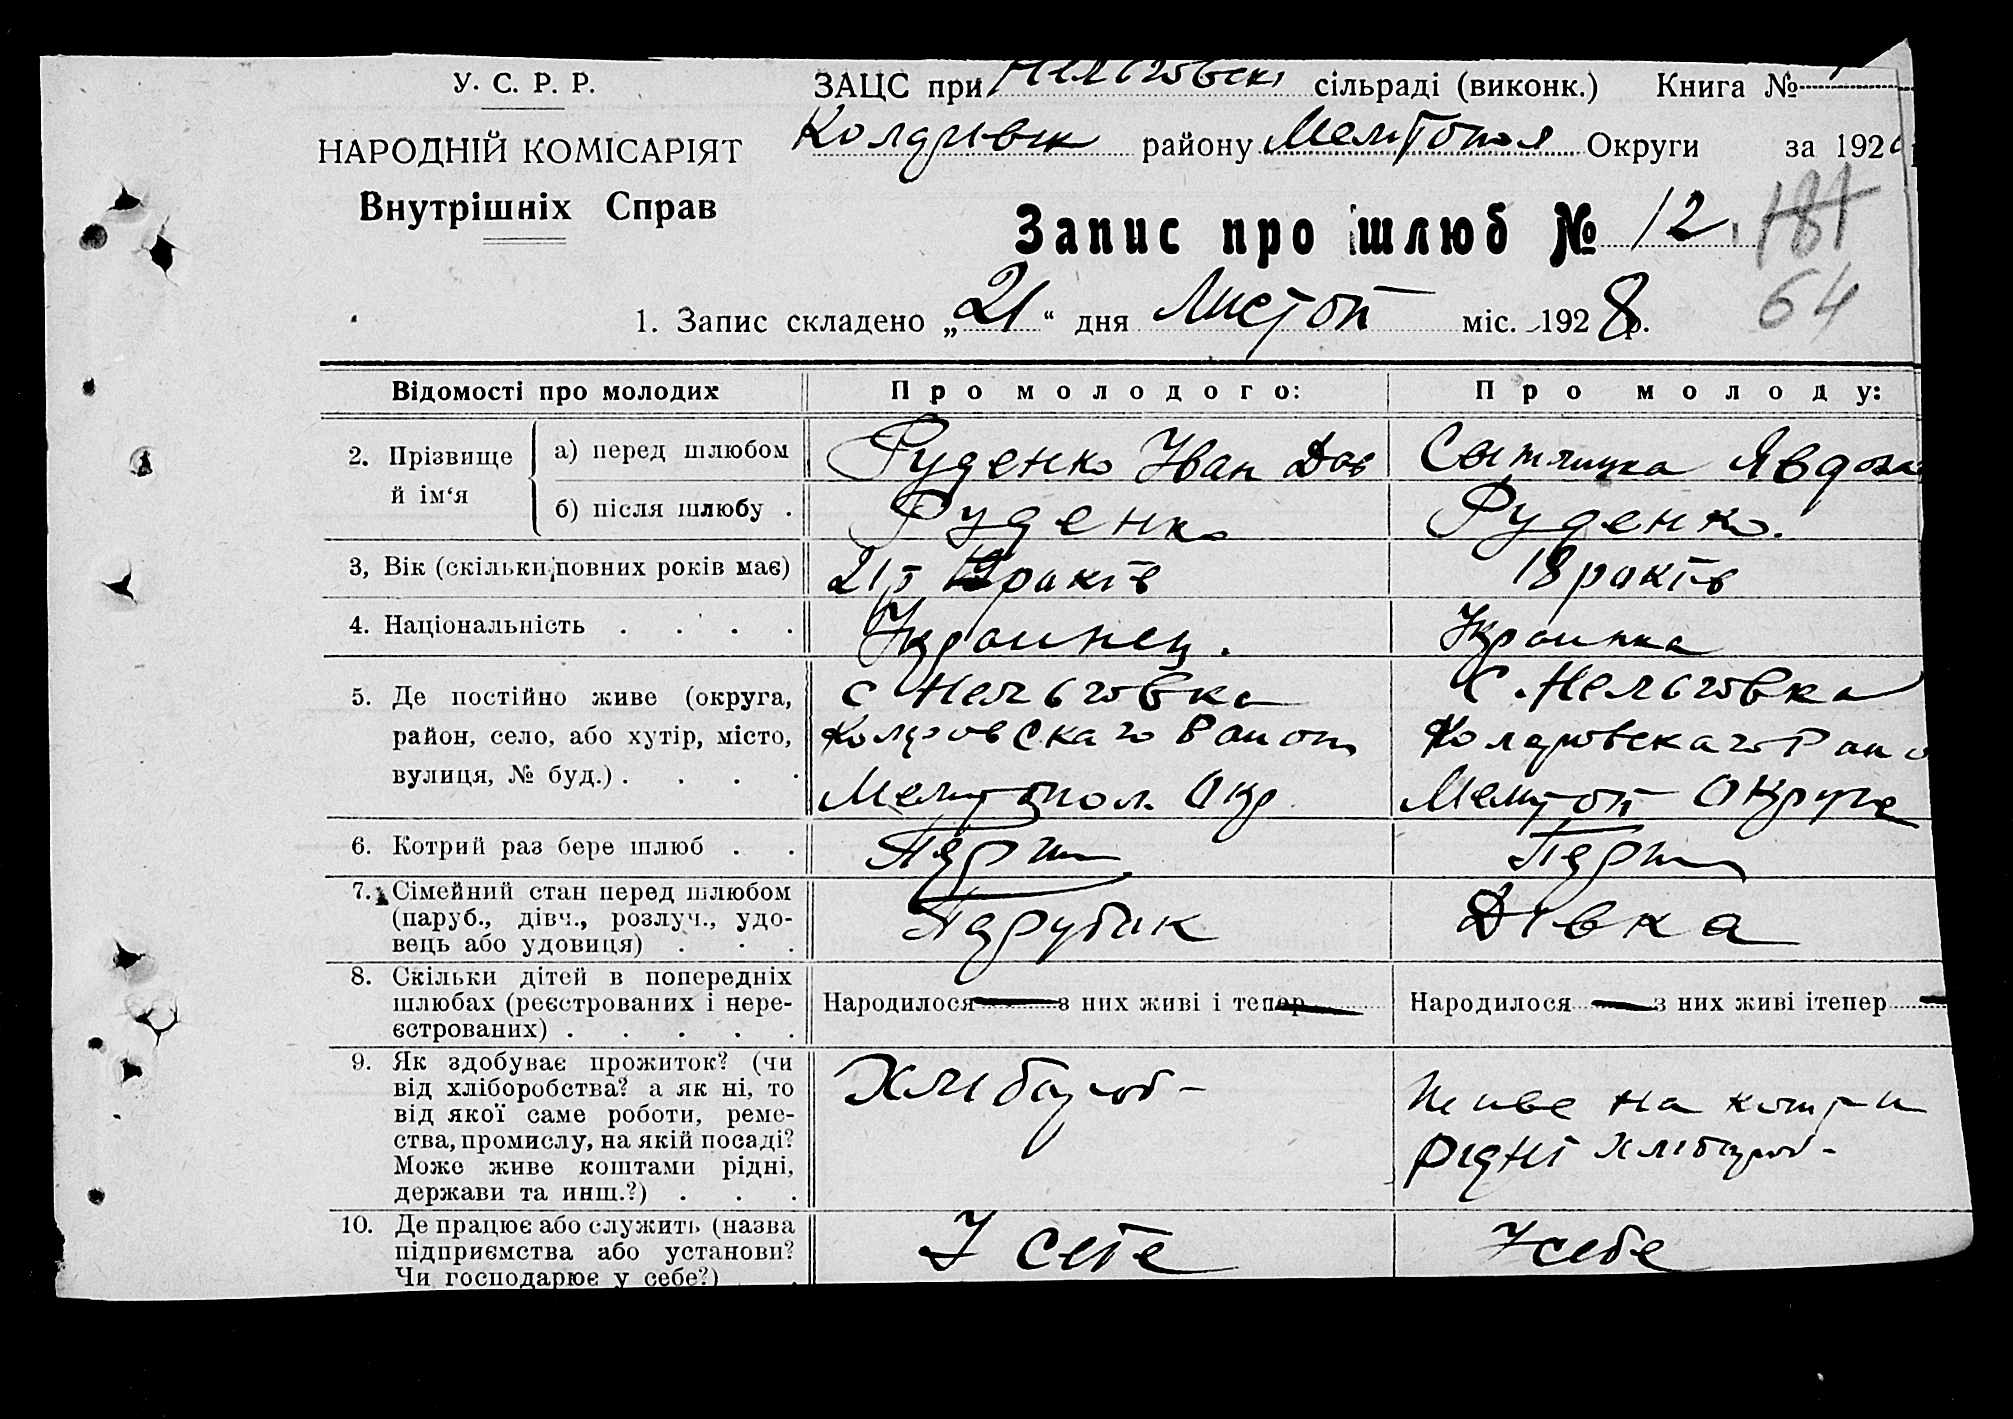 У. С. Р. Р.
ЗАЦС при Нельговскі сільраді (виконк.) Книга №
НАРОДНІЙ КОМІСАРІЯТ
району Мелитопол Округи за 192
Внутрішніх Справ
Запис про шлюб № 12
181
64
1. Запис складено „21“ дня Листоп міс. 1928 р.
Відомості про молодих Про молодого: Про молоду:
2. Прізвище й ім‘я
а) перед шлюбом Руденко Іван Явдоха
б) після шлюбу . Руденко Руденко.
3, Вік (скільки повних років має) 21 років 18 років
4. Національність . . . . Украинец. Украинка
5. Де постійно живе (округа, с Нельговка с. Нельговка
район, село, або хутір, місто,
вулиця, № буд.) . . . . Округе
6. Котрий раз бере шлюб . . Перш Перш
7. Сімейний стан перед шлюбом
(паруб., дівч., розлуч., удо- Парубик Дівка
вець або удовиця) . . .
8. Скільки дітей в попередніх
шлюбах (реєстрованих і нере- Народилося з них живі і тепер Народилося з них живі ітепер
єстрованих) . . . . .
9. Як здобуває прожиток? (чи
від хліборобства? а як ні, то Хлібороб-
від якої саме роботи, реме- живе на
ства, промислу, на якій посаді? рідні хлібороб-
Може живе коштами рідні,
держави та инш.?) . . .
10. Де працює або служить (назва У себе У себе
підприємства або установи?
Чи господарює у себе?) .